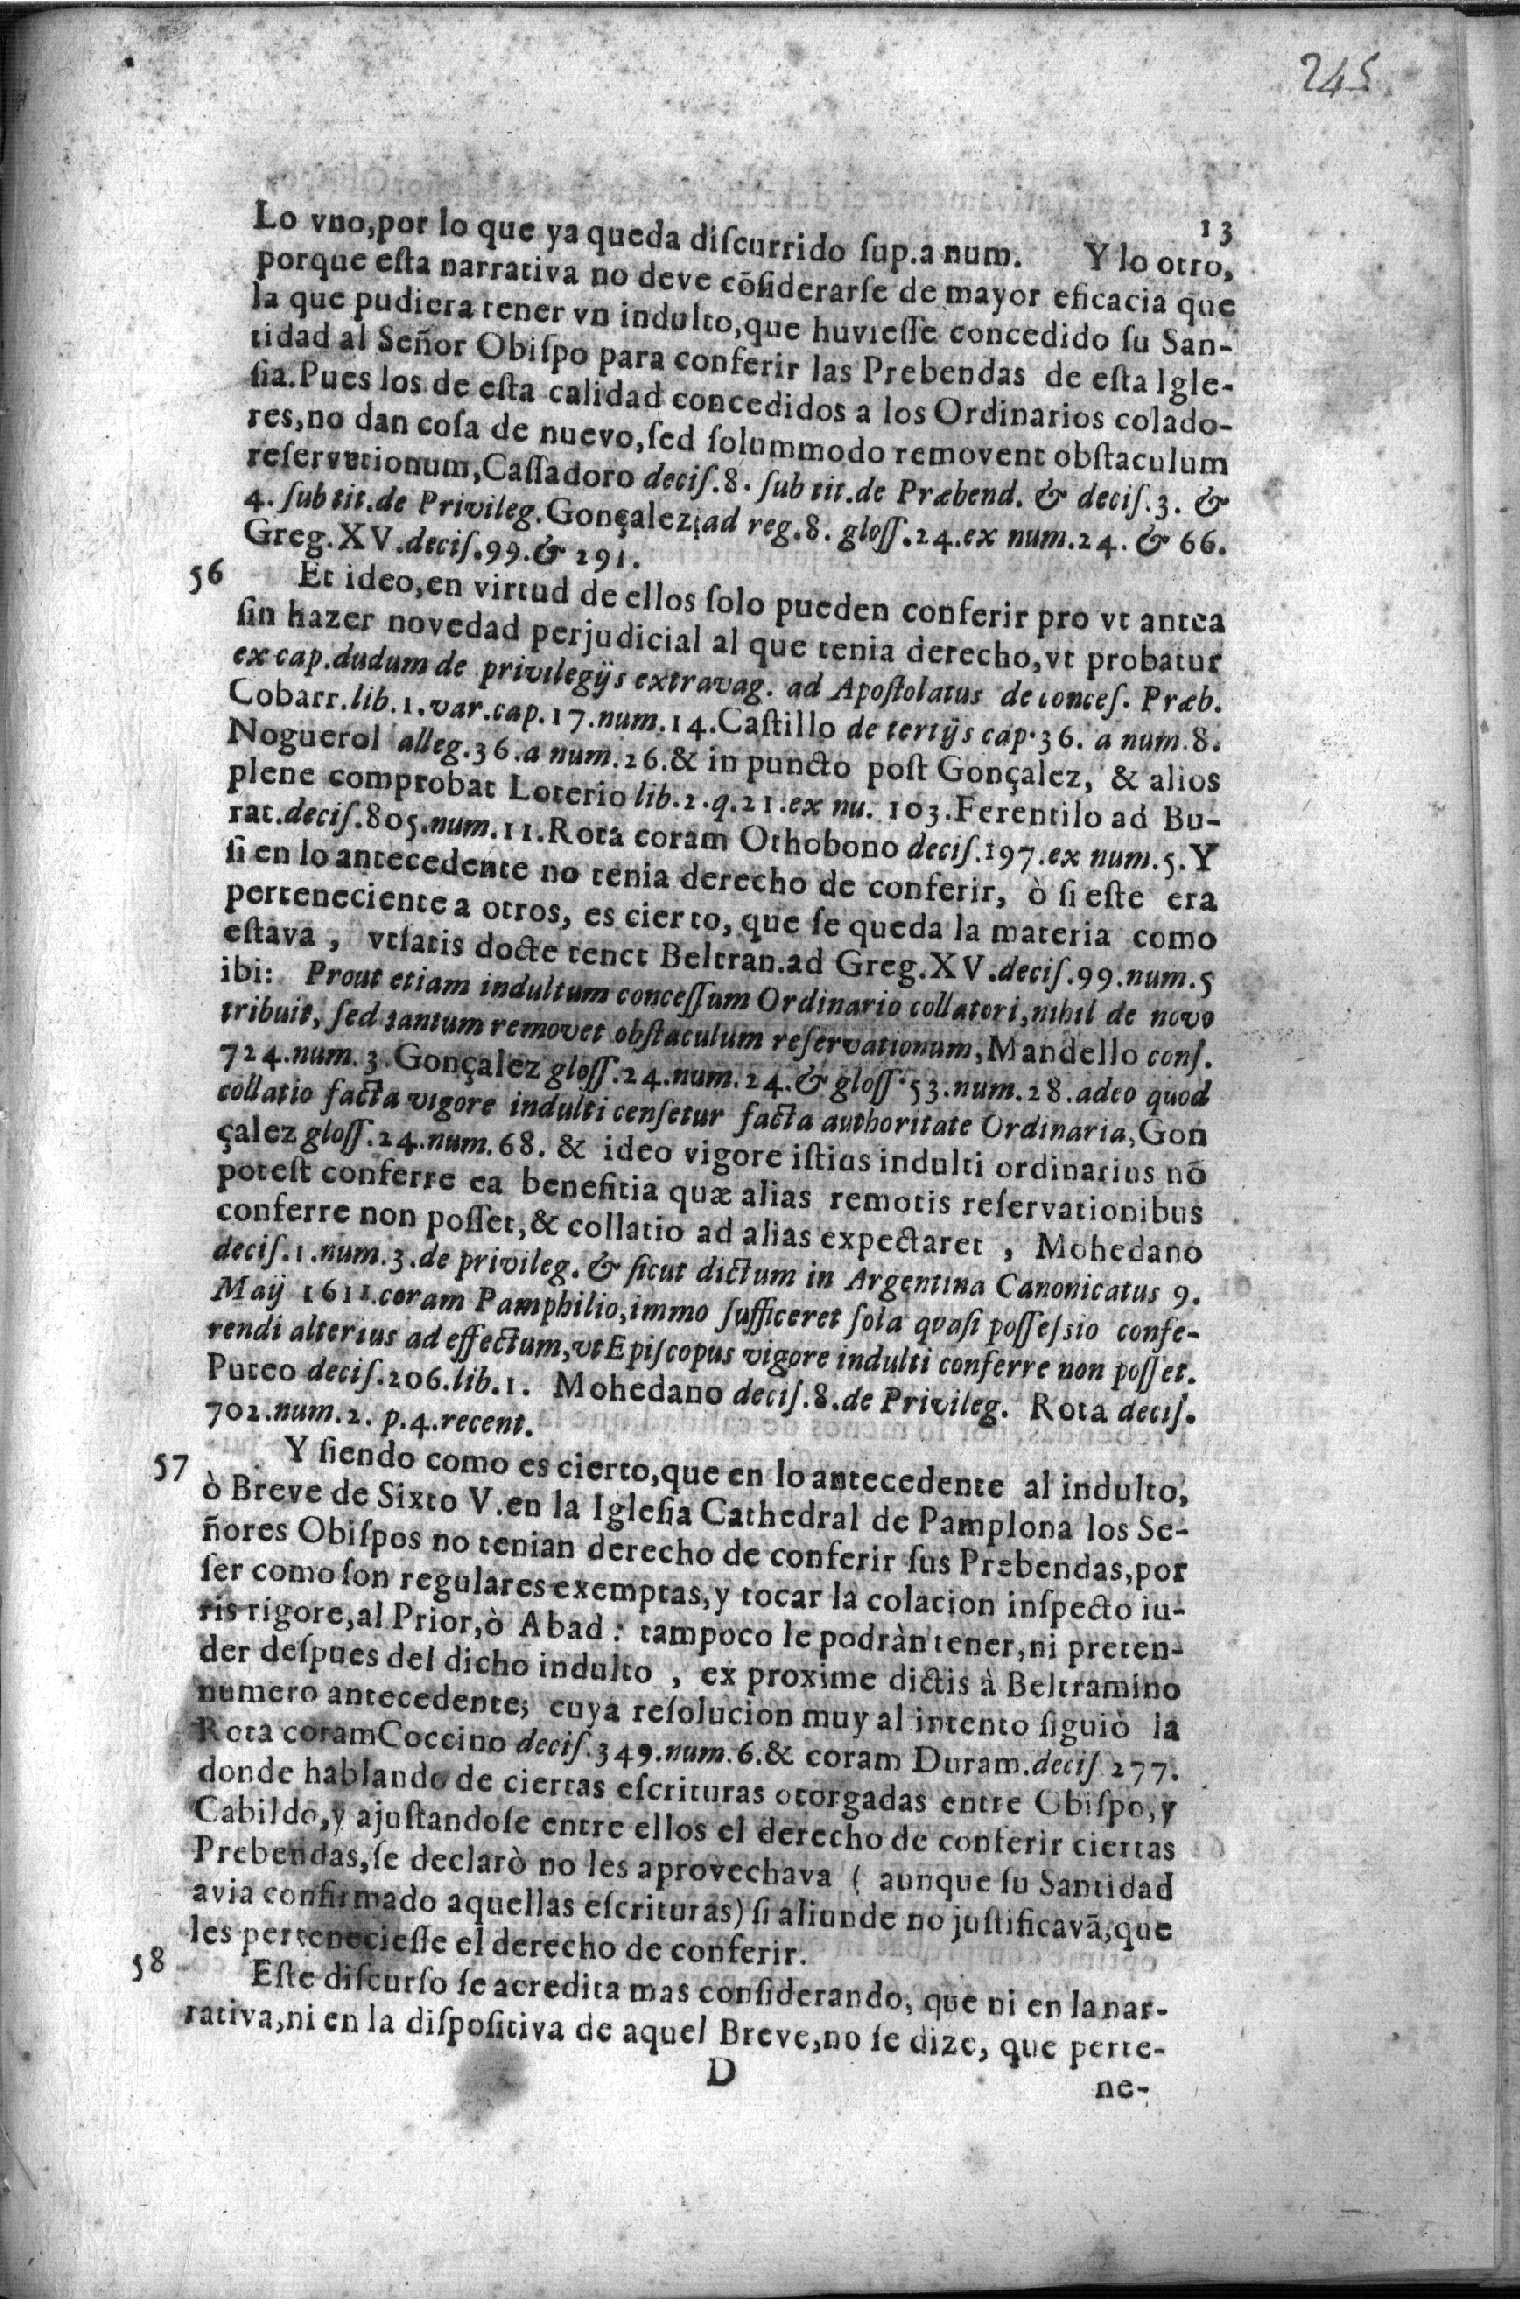 245
13
Lo vno,por lo que ya queda diſcurrido ſup.a num. Y lo otro,
porque eſta narrativa no deve cõſiderarſe de mayor eficacia que
la que pudiera tener vn indulto,que huvieſſe concedido ſu San-
tidad al Señor Obiſpo para conferir las Prebendas de eſta Igle-
ſia.Pues los de eſta calidad concedidos a los Ordinarios colado-
res,no dan coſa de nuevo,ſed ſolummodo removent obſtaculum
reſervationum,Caſſadoro deciſ.8. ſub tit.de Præbend. & deciſ.3. &
4. ſub tit.de Privileg.Gonçalez ad reg.8. gloſſ.24.ex num.24. & 66.
Greg.XV.deciſ.99.& 291.
56 Et ideo,en virtud de ellos ſolo pueden conferir pro vt antea
ſin hazer novedad perjudicial al que tenia derecho,vt probatur
ex cap.dudum de privilegijs extravag. ad Apoſtolatus de conceſ. Præb.
Cobarr.lib.1.var.cap.17.num.14.Caſtillo de tertijs cap.36. a num.8.
Noguerol alleg.36.a num.26.& in puncto poſt Gonçalez, & alios
plene comprobat Loterio lib.2.q.21.ex nu. 103.Ferentilo ad Bu-
rat.deciſ.805.num.11.Rota coram Othobono deciſ.197.ex num.5.Y
ſi en lo antecedente no tenia derecho de conferir, ò ſi eſte era
perteneciente a otros, es cierto, que ſe queda la materia como
eſtava , vtſatis docte tenet Beltran.ad Greg.XV.deciſ.99.num.5
ibi: Prout etiam indultum conceſſum Ordinario collatori,nihil de novo
tribuit, ſed tantum removet obſtaculum reſervationum,Mandello conſ.
724.num.3.Gonçalez gloſſ.24.num.24.& gloſſ.53.num.28.adeo quod
collatio facta vigore indulti cenſetur facta authoritate Ordinaria,Gon
çalez gloſſ.24.num.68. & ideo vigore iſtius indulti ordinarius nõ
poteſt conferre ea benefitia quæ alias remotis reſervationibus
conferre non poſſet,& collatio ad alias expectaret , Mohedano
deciſ.1.num.3.de privileg.& ſicut dictum in Argentina Canonicatus 9.
Maij 1611.coram Pamphilio,immo ſufficeret ſola quaſi poſſeſsio confe-
rendi alterius ad effectum,vt Epiſcopus vigore indulti conferre non poſſet.
Puteo deciſ.206.lib.1. Mohedano deciſ.8.de Privileg. Rota deciſ.
702.num.2. p.4.recent.
57 Y ſiendo como es cierto,que en lo antecedente al indulto,
ò Breve de Sixto V.en la Igleſia Cathedral de Pamplona los Se-
ñores Obiſpos no tenian derecho de conferir ſus Prebendas,por
ſer como ſon regulares exemptas,y tocar la colacion inſpecto iu-
ris rigore,al Prior,ò Abad : tampoco le podràn tener,ni preten-
der deſpues del dicho indulto , ex proxime dictis à Beltramino
numero antecedente; cuya reſolucion muy al intento ſiguiò la
Rota coram Coccino deciſ.349.num.6.& coram Duram.deciſ 277.
donde hablando de ciertas eſcrituras otorgadas entre Obiſpo,y
Cabildo,y ajuſtandoſe entre ellos el derecho de conferir ciertas
Prebendas,ſe declarò no les aprovechava ( aunque ſu Santidad
avia confirmado aquellas eſcrituras) ſi aliunde no juſtificavã,que
les pertenecieſſe el derecho de conferir.
58 Eſte diſcurſo ſe acredita mas conſiderando, que ni en la nar-
rativa,ni en la diſpoſitiva de aquel Breve,no ſe dize, que perte-
D
ne-